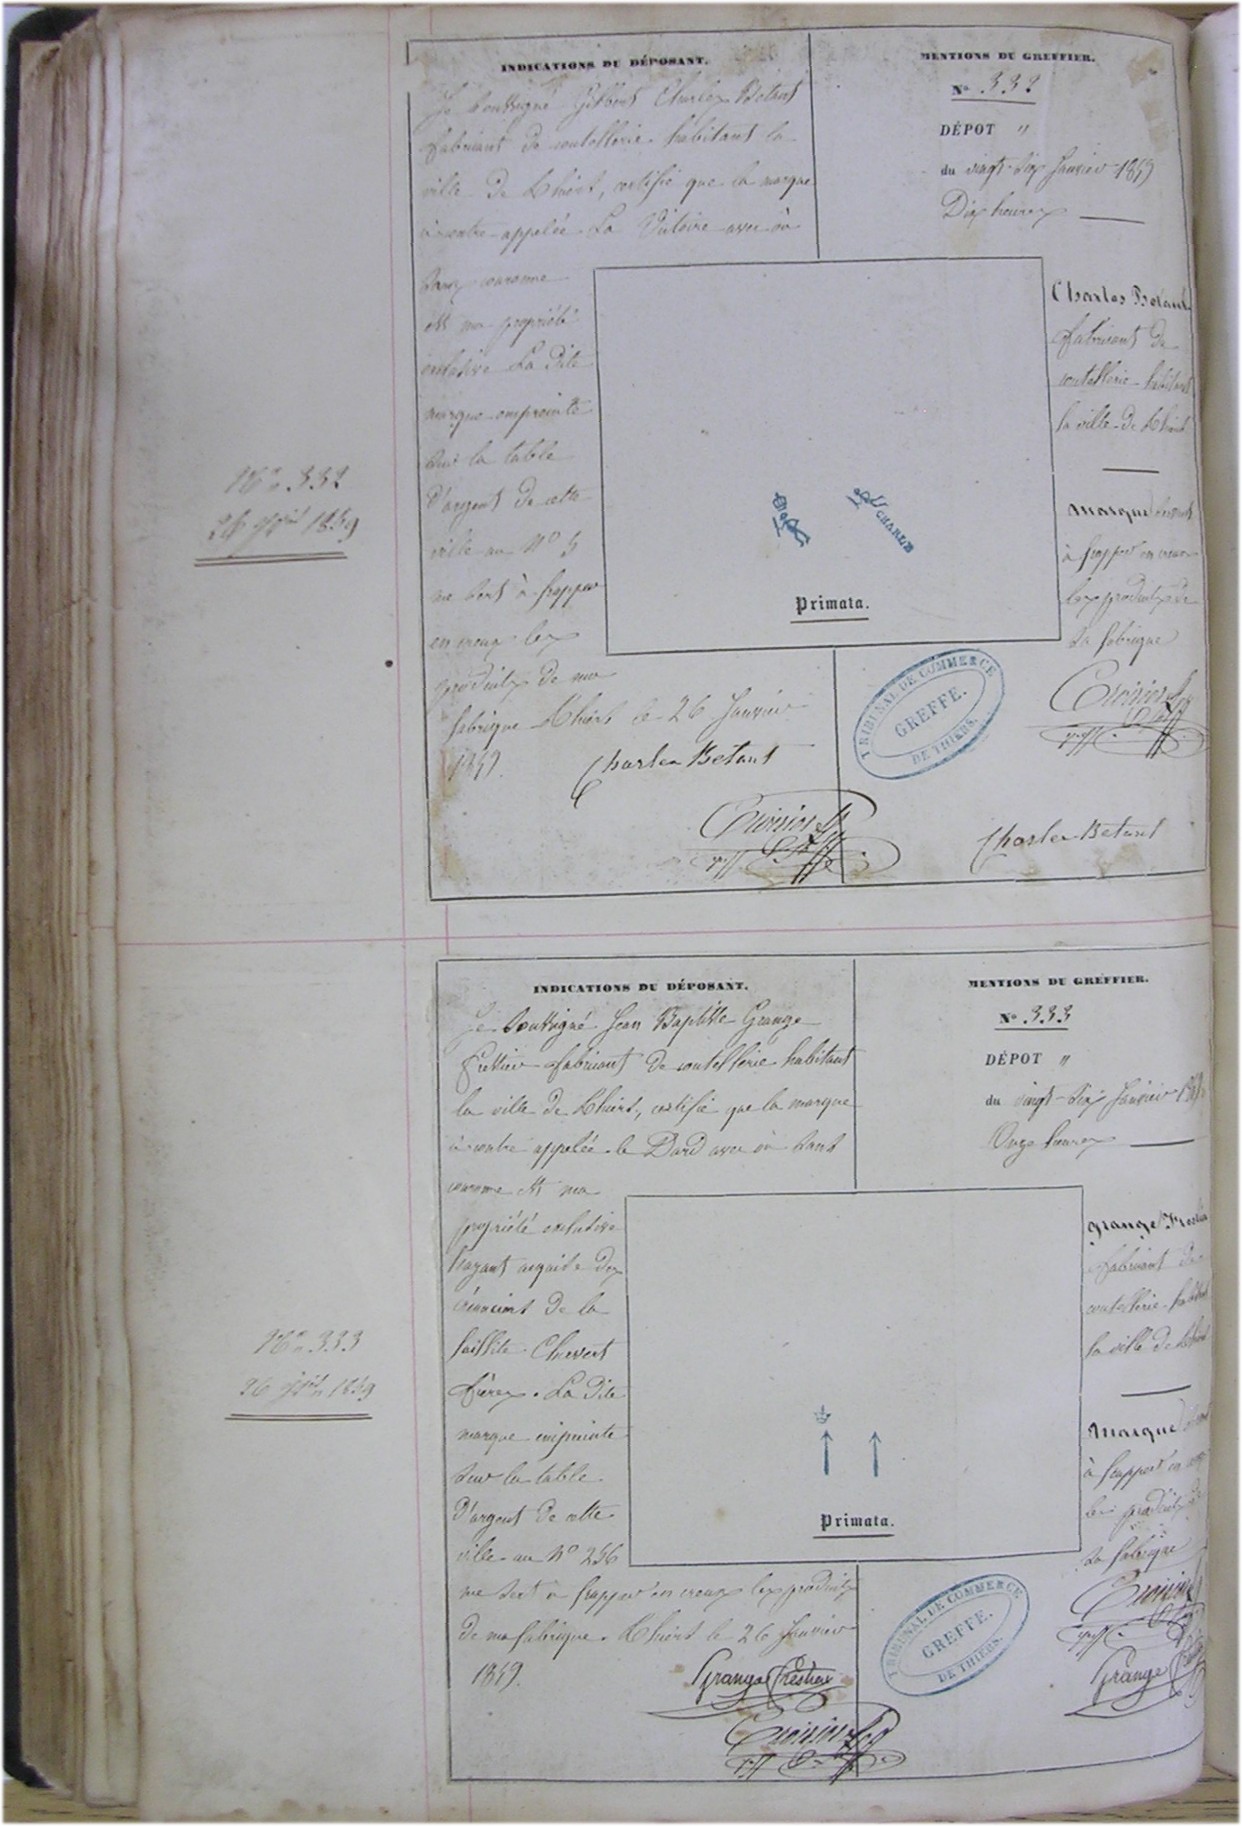 INDICATIONS DU DÉPOSANT.
Je soussigné Gilbert Charles Bétant
fabricant de coutellerie habitant la
ville de Thiers, certifie que la marque
ci-contre appelée La Victoire avec où
sans couronne
est ma propriété
exclusive La dite
marque empreinte
sur la table
d'argent de cette
ville au N° 5
me sert à frapper
en creux les
produits de ma
fabrique Thiers le 26 Janvier
1859.
Charles Betant
MENTIONS DU GREFFIER.
N° 332
DÉPOT "
du vingt-six Janvier 1859
Dix heures
Charles Betant
fabricant de
coutellerie habitant
la ville de Thiers
Marque servant
à frapper en creux
les produits de
sa fabrique
Charles Betant
CHARLES
Primata.
TRIBUNAL DE COMMERCE
GREFFE.
DE THIERS.
N° 332
26 1859
INDICATIONS DU DÉPOSANT.
Je soussigné Jean Baptiste Grange
Frestier fabricant de coutellerie habitant
la ville de Thiers, certifie que la marque
ci-contre appelée le Dard avec où sans
couronne est ma
propriété exclusive
l'ayant acquise des
créanciers de la
faillite Chevert
frères. La dite
marque empreinte
sur la table
d'argent de cette
ville au N° 256
me sert à frapper en creux les produits
de ma fabrique. Thiers le 26 Janvier
1859.
Grange Frestier
MENTIONS DU GREFFIER.
N° 333
DÉPOT "
du vingt-six Janvier
Onze heures
Grange Frestier
fabricant de
coutellerie habitant
la ville de Thiers
Marque servant
à frapper en creux
les produits de
sa fabrique
Grange
Primata.
TRIBUNAL DE COMMERCE
GREFFE.
DE THIERS.
N° 333
26 1859